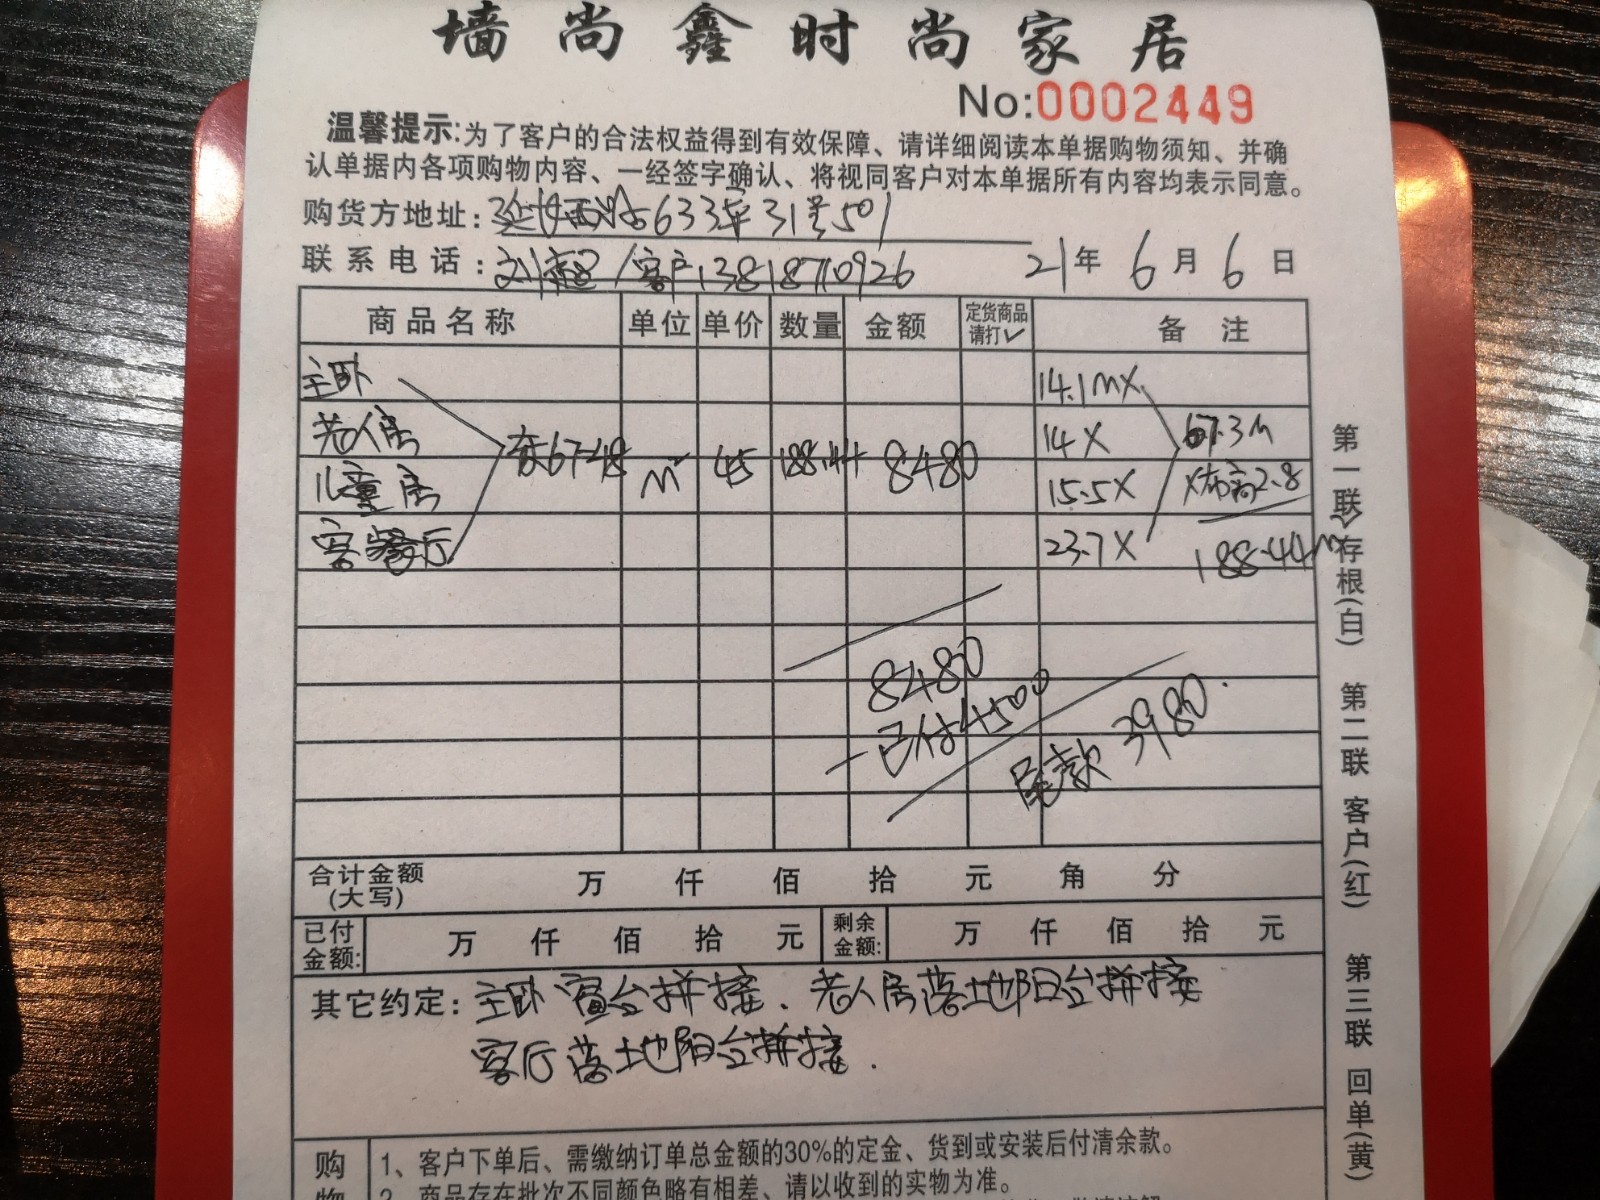 墙尚鑫时尚家居
No:0002449
温馨提示:为了客户的合法权益得到有效保障、请详细阅读本单据购物须知、并确
认单据内各项购物内容、一经签字确认、将视同客户对本单据所有内容均表示同意。
购货方地址:延长西路633弄31号501
联系电话:刘超/客户13818710926 21年6月6日
商品名称 单位 单价 数量 金额 定货商品请打✓ 备注
主卧 14.1m×
老人房 14× 67.3m
67-48 m² 45 188.44 8480
儿童房 15.5× ×布高2.8
客餐厅 23.7× 188.44m²
8480
-已付4500
尾款 3980.
合计金额(大写) 万 仟 佰 拾 元 角 分
已付金额: 万 仟 佰 拾 元 剩余金额: 万 仟 佰 拾 元
其它约定:主卧窗台拼接、老人房落地阳台拼接
客厅落地阳台拼接.
购物
1、客户下单后、需缴纳订单总金额的30%的定金、货到或安装后付清余款。
2、商品存在批次不同颜色略有相差、请以收到的实物为准。
第一联 存根(白) 第二联 客户(红) 第三联 回单(黄)